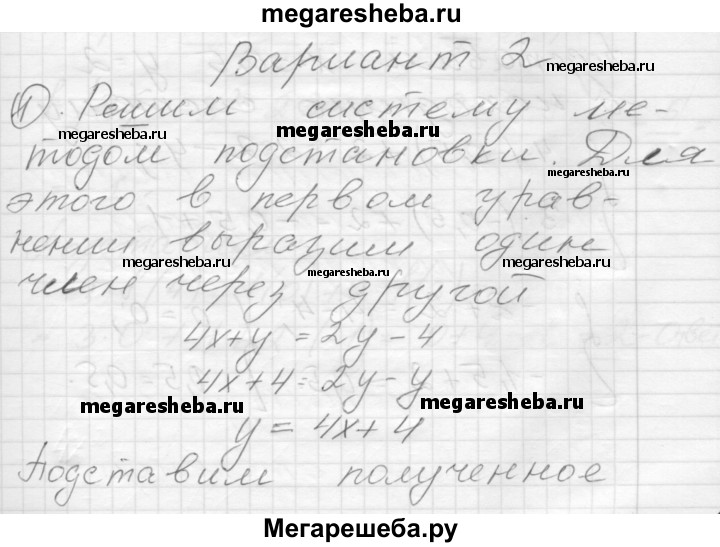 megaresheba.ru
Вариант 2
megaresheba.ru
1). Решим систему ме-
megaresheba.ru megaresheba.ru
тодом подстановки. Для
megaresheba.ru
этого в первом урав-
нении выразим один
megaresheba.ru megaresheba.ru megaresheba.ru
член через другой
4x+y=2y-4
4x+4=2y-y
megaresheba.ru megaresheba.ru
y=4x+4
Подставим полученное
Мегарешеба.ру